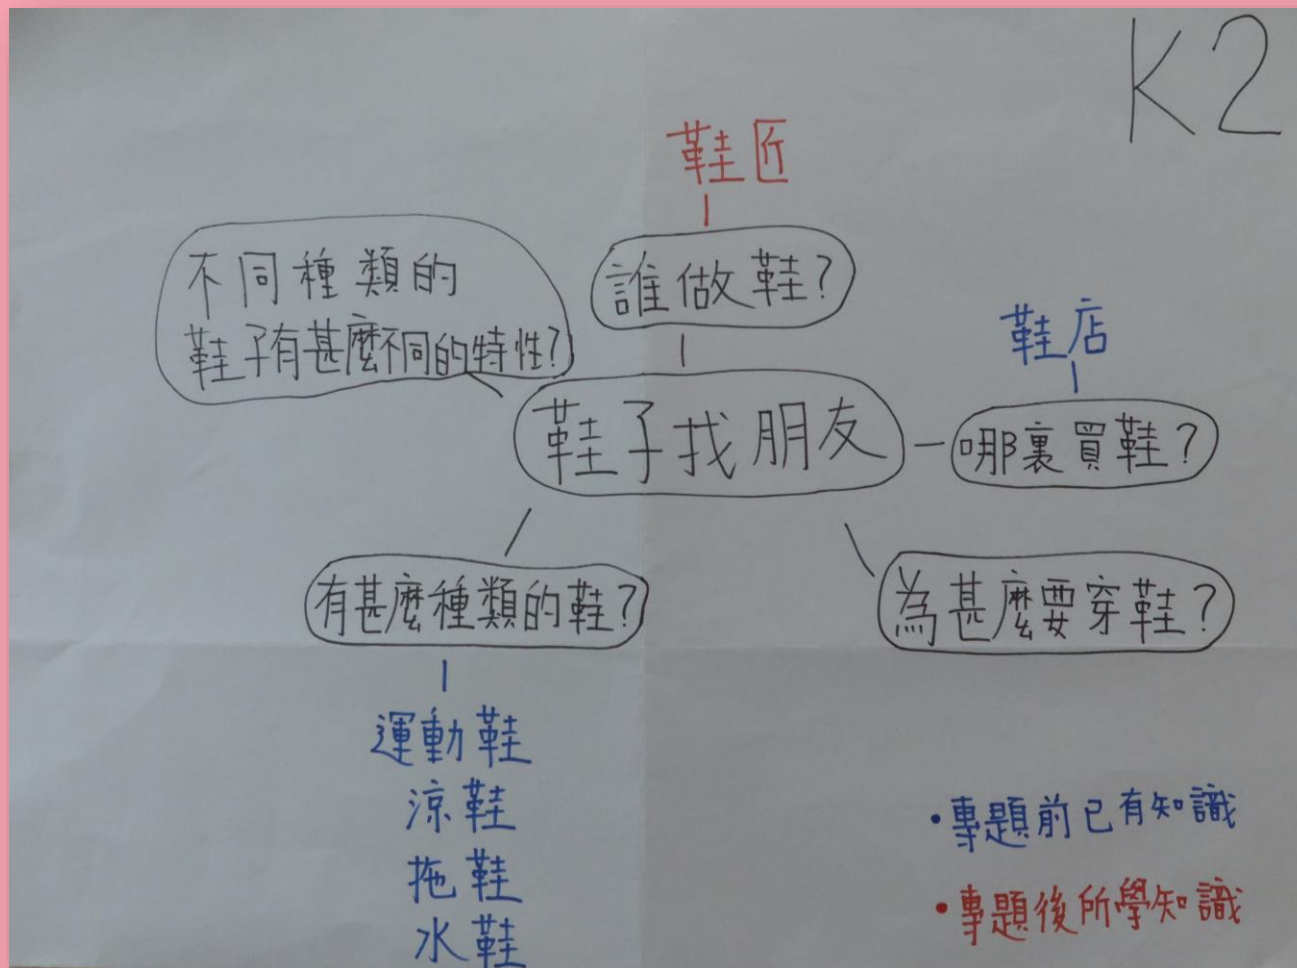 K2
鞋匠
不同種類的
鞋子有甚麼不同的特性?
誰做鞋?
鞋店
鞋子找朋友
哪裏買鞋?
有甚麼種類的鞋?
為甚麼要穿鞋?
運動鞋
涼鞋
拖鞋
水鞋
•專題前已有知識
•專題後所學知識